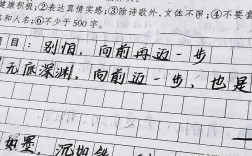 健康积极；②表达真情实感；③除诗歌外，文体不限；④不要套
和人名；⑥不少于500字。
目：别怕，向前再迈一步
无底深渊，向前迈一步，也是
如墨，沉如铁